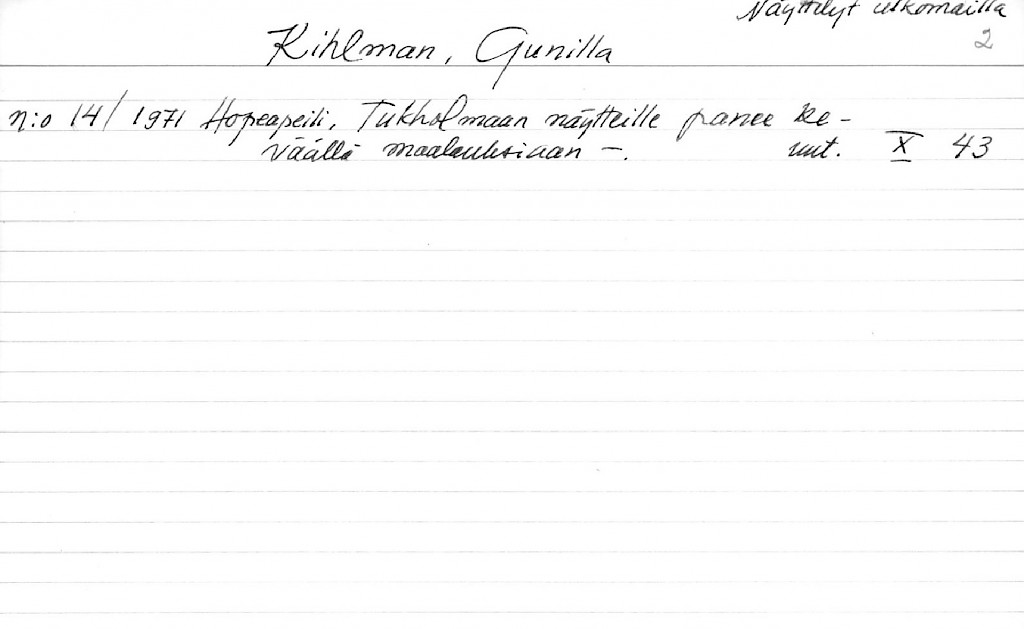 Näyttelyt ulkomailla
2
Kihlman, Gunilla
n:o 14/1971 Hopeapeili, Tukholmaan näytteille panee ke-
väällä maalauksiaan -. uut. X 43